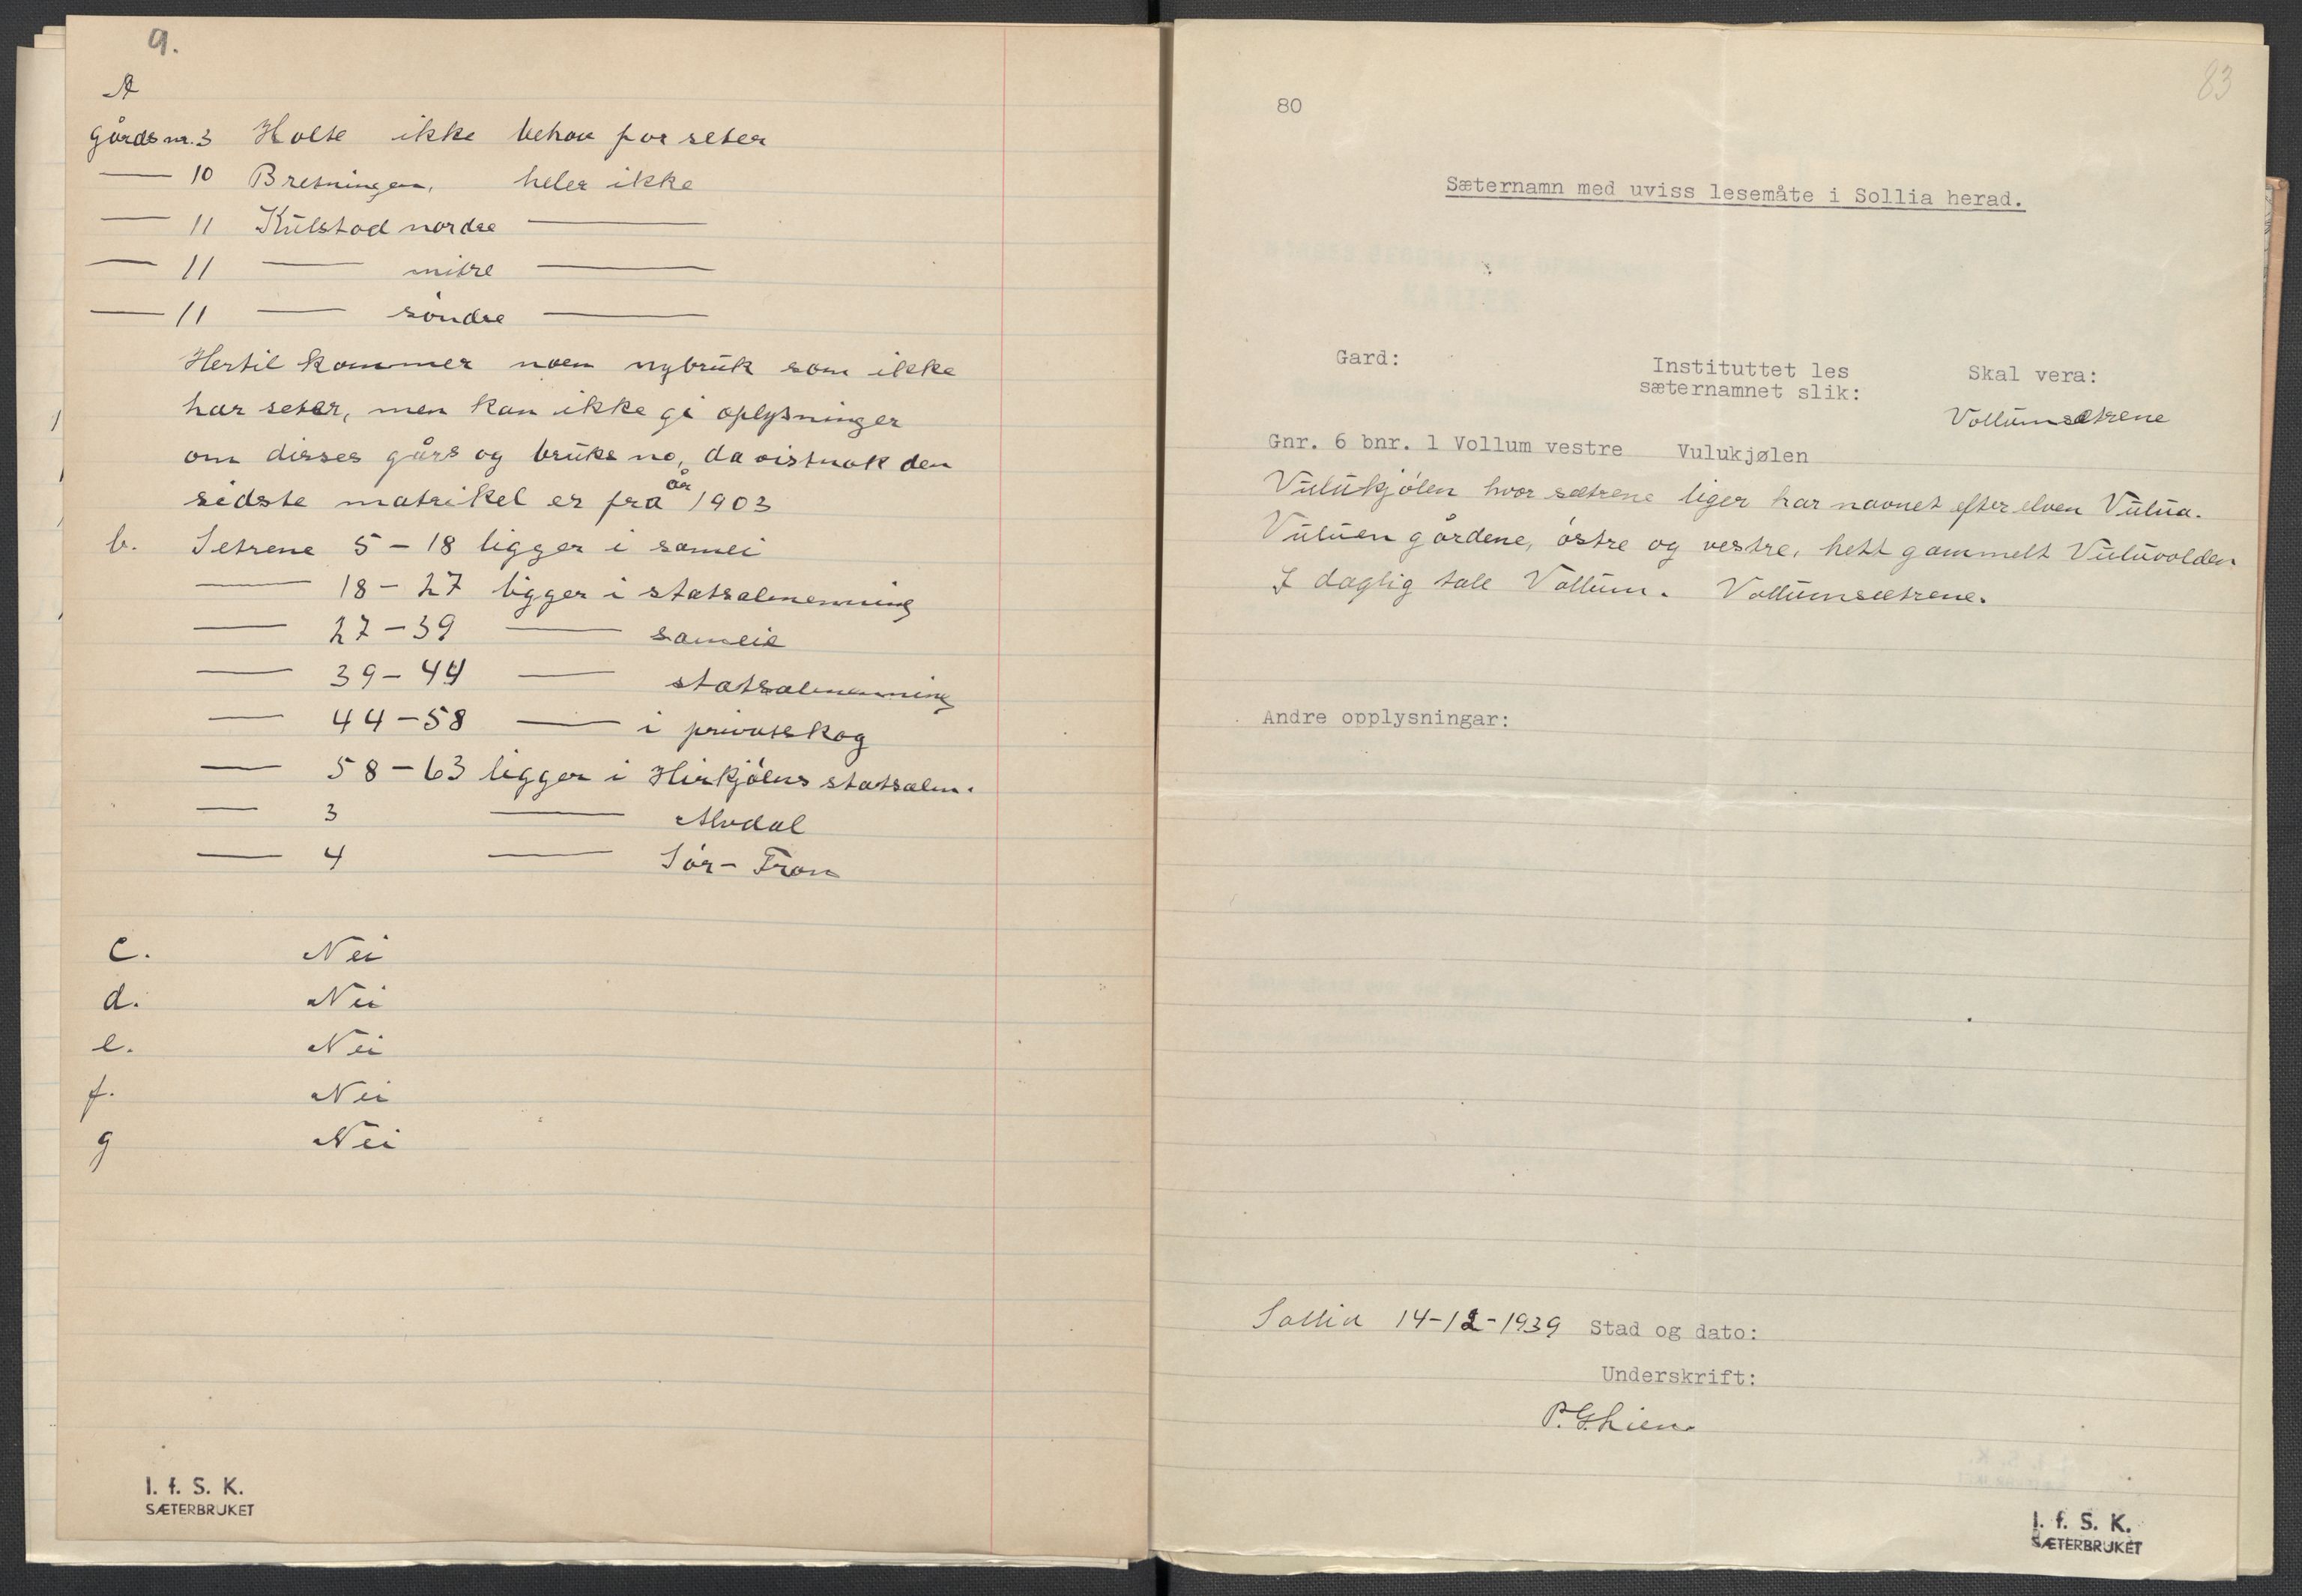 9.
A
gårds nr. 3 Holte ikke behov for seter
— 10 Bretningen, heler ikke
— 11 Kulstad nordre —
— 11 — mitre —
— 11 — söndre —
Hertil kommer noen nybruk som ikke
har seter, men kan ikke gi oplysninger
om disses gårs og bruks no, da vistnok den
sidste matrikel er fra år 1903
b. Setrene 5 – 18 ligger i samei
— 18 – 27 ligger i statsalmenning
— 27 – 39 — sameie
— 39 – 44 — statsalmenning
— 44 – 58 — i privatskog
— 58 – 63 ligger i Hirkjölens statsalm.
— 3 — Alvdal
— 4 — Sör-Fron
c. Nei
d. Nei
e. Nei
f. Nei
g Nei
I. f. S. K.
SÆTERBRUKET
83
80
Sæternamn med uviss lesemåte i Sollia herad.
Gard: Instituttet les Skal vera:
sæternamnet slik:
Vollumsætrene
Gnr. 6 bnr. 1 Vollum vestre Vulukjølen
Vulukjölen hvor sætrene liger har navnet efter elven Vulua.
Vuluen gårdene, östre og vestre, hett gammelt Vuluvolden
I daglig tale Vollum. Vollumsætrene.
Andre opplysningar:
Sollia 14-12-1939 Stad og dato:
Underskrift:
P. G. Lien
I. f. S. K.
SÆTERBRUKET